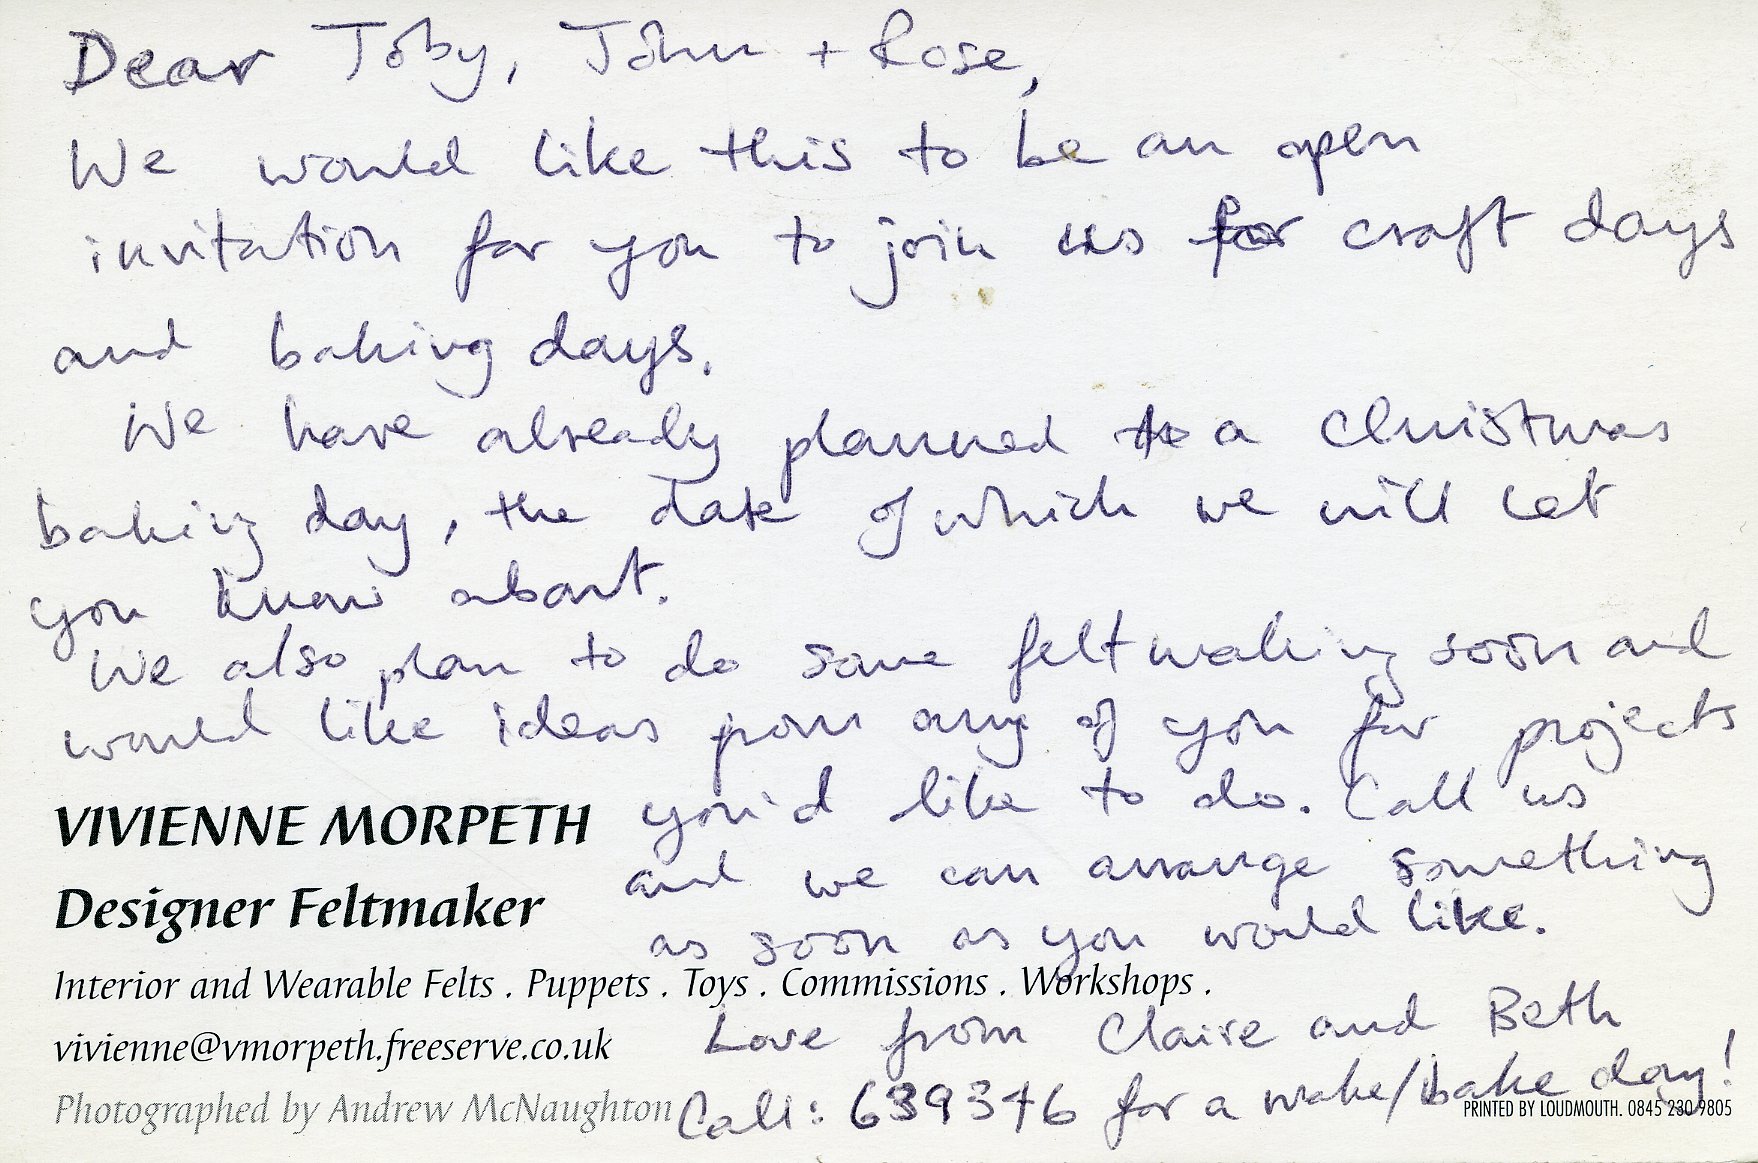 Dear Toby, John + Rose,
We would like this to be an open
invitation for you to join us for craft days
and baking days.
We have already planned a Christmas
baking day, the date of which we will let
you know about.
We also plan to do some felt making soon and
would like ideas from any of you for projects
you'd like to do. Call us
and we can arrange something
as soon as you would like.
Love from Claire and Beth
Call: 639346 for a make/bake day!
VIVIENNE MORPETH
Designer Feltmaker
Interior and Wearable Felts . Puppets . Toys . Commissions . Workshops .
vivienne@vmorpeth.freeserve.co.uk
Photographed by Andrew McNaughton
PRINTED BY LOUDMOUTH. 0845 230 9805